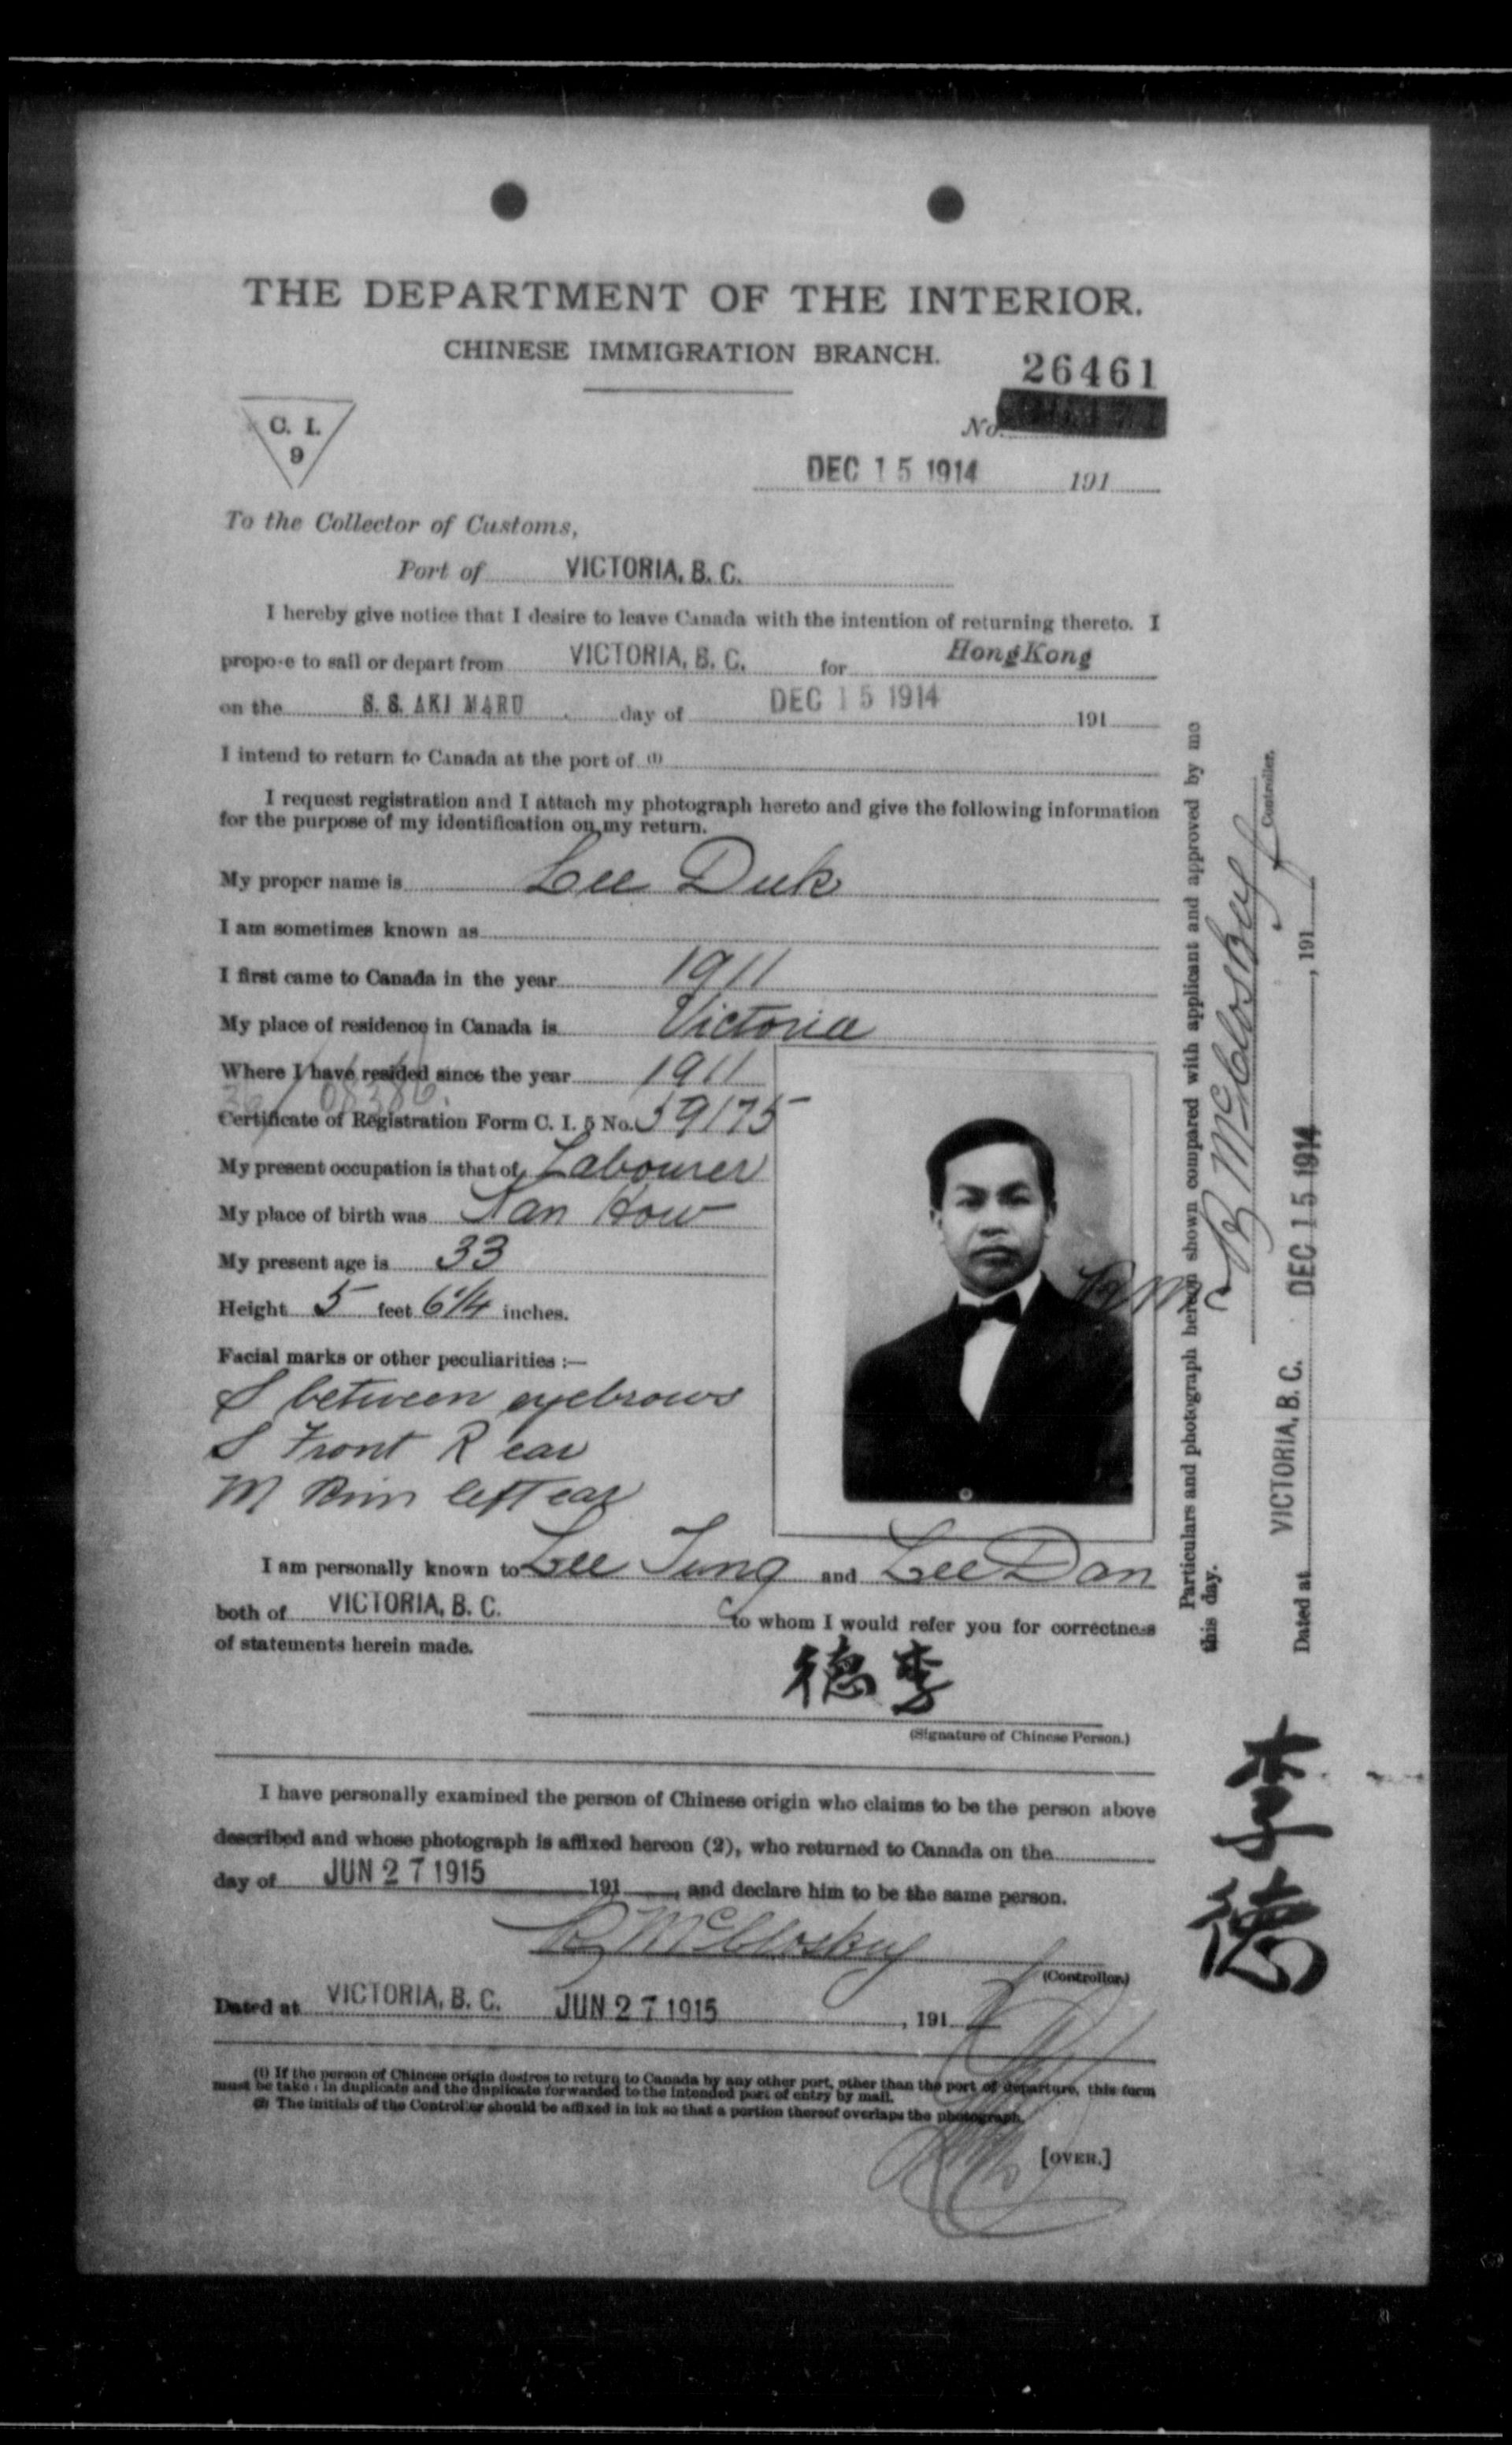 THE DEPARTMENT OF THE INTERIOR.
CHINESE IMMIGRATION BRANCH.
26461
No.
C. I.
9
DEC 15 1914 191
To the Collector of Customs,
Port of VICTORIA, B. C.
I hereby give notice that I desire to leave Canada with the intention of returning thereto. I
propose to sail or depart from VICTORIA, B. C. for HongKong
on the S. S. AKI MARU day of DEC 15 1914 191
I intend to return to Canada at the port of (1)
I request registration and I attach my photograph hereto and give the following information
for the purpose of my identification on my return.
My proper name is Lee Duk
I am sometimes known as
I first came to Canada in the year 1911
My place of residence in Canada is Victoria
Where I have resided since the year 1911
Certificate of Registration Form C. I. 5 No. 59175
My present occupation is that of Labourer
My place of birth was San How
My present age is 33
Height 5 feet 6 1/4 inches.
Facial marks or other peculiarities :—
S between eyebrows
S Front R ear
M Rim left ear
I am personally known to Lee Tung and Lee Dan
both of VICTORIA, B. C. to whom I would refer you for correctness
of statements herein made.
德李
(Signature of Chinese Person.)
I have personally examined the person of Chinese origin who claims to be the person above
described and whose photograph is affixed hereon (2), who returned to Canada on the
day of JUN 27 1915 191 , and declare him to be the same person.
B McCloskey
(Controller)
Dated at VICTORIA, B. C. JUN 27 1915 , 191
(1) If the person of Chinese origin desires to return to Canada by any other port, other than the port of departure, this form
must be taken in duplicate and the duplicate forwarded to the intended port of entry by mail.
(2) The initials of the Controller should be affixed in ink so that a portion thereof overlaps the photograph.
[OVER.]
Particulars and photograph hereon shown compared with applicant and approved by me
this day.
B McCloskey
Controller.
Dated at VICTORIA, B. C. DEC 15 1914 , 191
李德